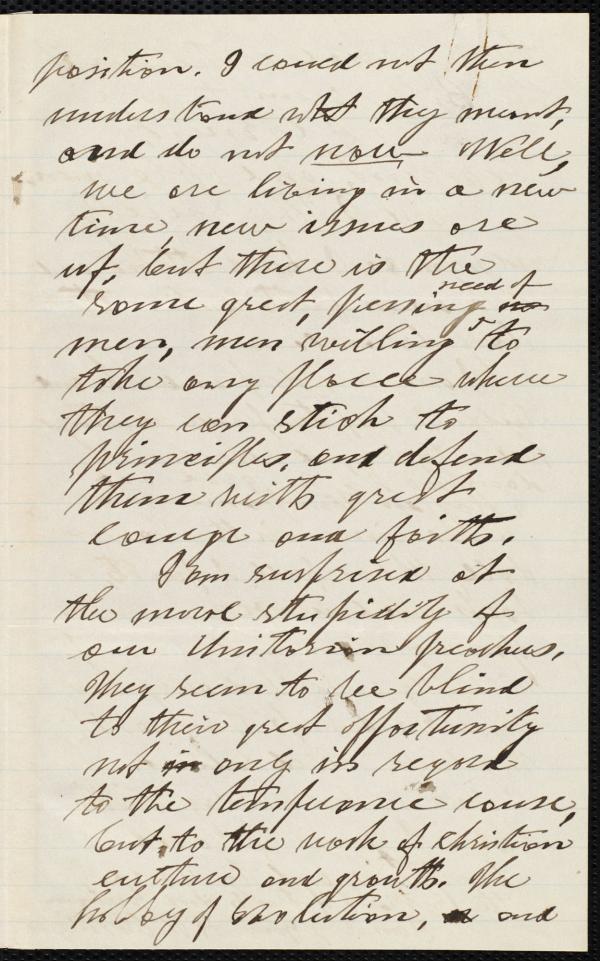 position. I could not then
understand what they meant,
and do not now. Well,
we are living in a new
time, new issues are
up, but there is the
same great, pressing need of
men, men willing to
take any place where
they can stick to
principles, and defend
them with great
courage and faith.
I am surprised at
the moral stupidity of
our Unitarian preachers.
They seem to be blind
to their great opportunity
not in only in regard
to the temperance cause,
but to the work of Christian
culture and growth. The
hobby of evolution, and